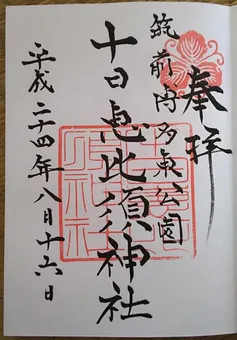 奉拝
筑前内多東公園
十日恵比須神社
平成二十四年八月十六日